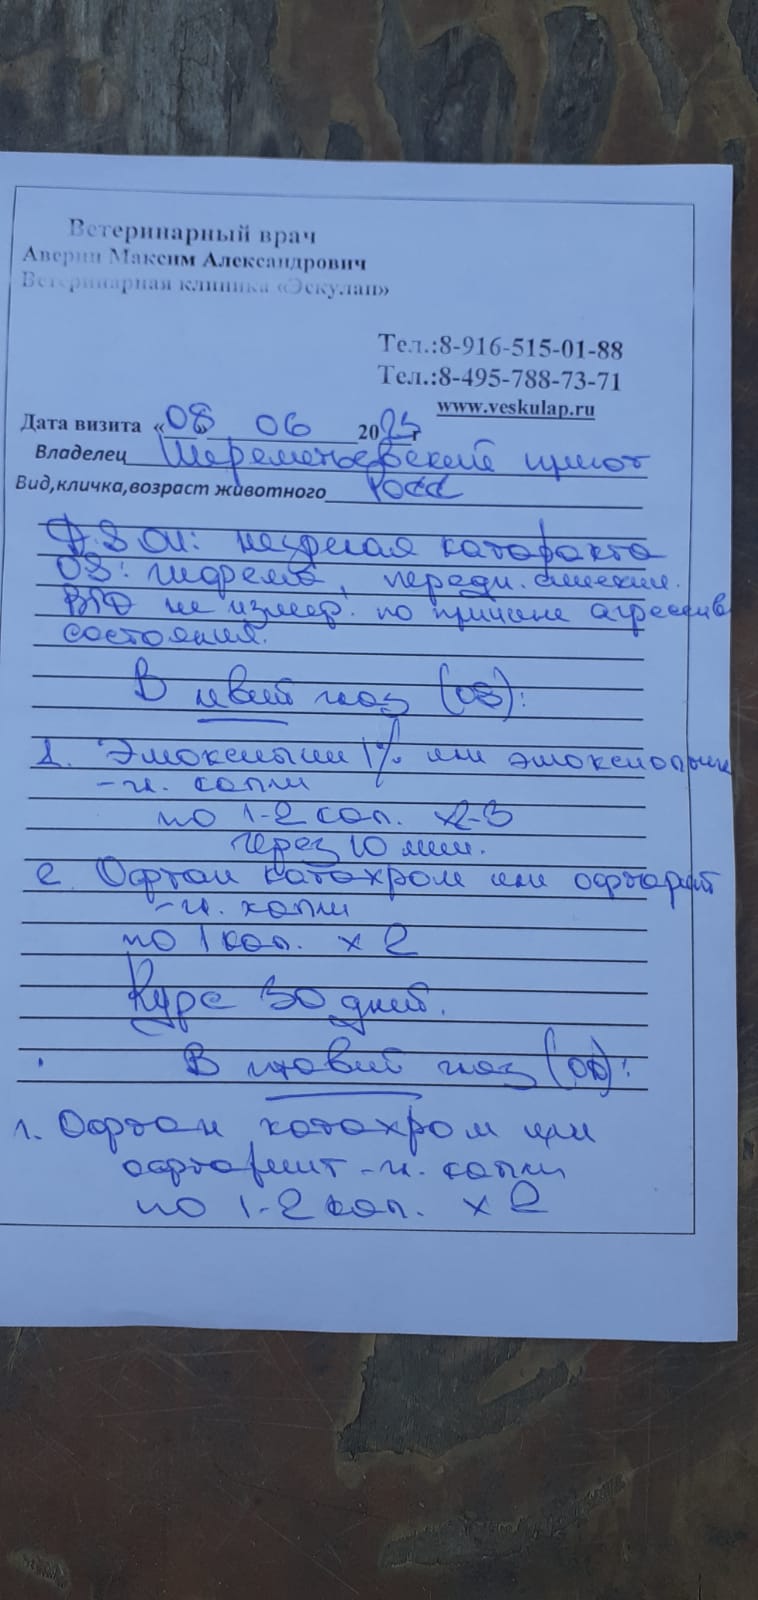 Ветеринарный врач
Аверин Максим Александрович
Ветеринарная клиника «Эскулап»
Тел.:8-916-515-01-88
Тел.:8-495-788-73-71
www.veskulap.ru
Дата визита «08» 06 2025г
Владелец Шереметьевский приют
Вид,кличка,возраст животного Росс
D.S OU: незрелая катаракта
OS: передн.
ВГД не измер. по причине агрессив
состояния.
В левый глаз (OS):
1. Эмоксипин 1% или эмоксиоптик
-гл. капли
по 1-2 кап. х2-3
через 10 мин.
2. Офтан катахром или
-гл. капли
по 1 кап. х 2
Курс 30 дней.
В правый глаз (OD):
1. Офтан катахром или
-гл. капли
по 1-2 кап. х 2